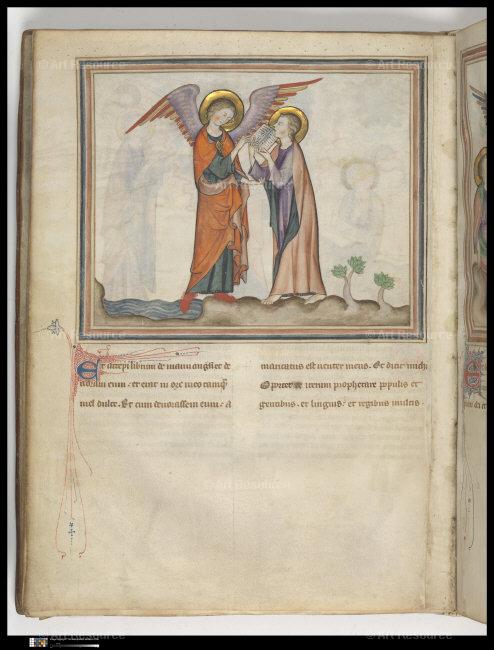 Et accepi librum de manu angeli et de
uoraui eum · et erat in ore meo tamqͣ
mel dulce · Et cum deuorassem eum · a
maricatus est uenter meus · Et dicit michi
Oportet te iterum prophetare populis et
gentibus · et linguis · et regibus multis ·
© Art Resource
© Art Resource
© Art Resource
© Art Resource
© Art Resource
© Art Resource